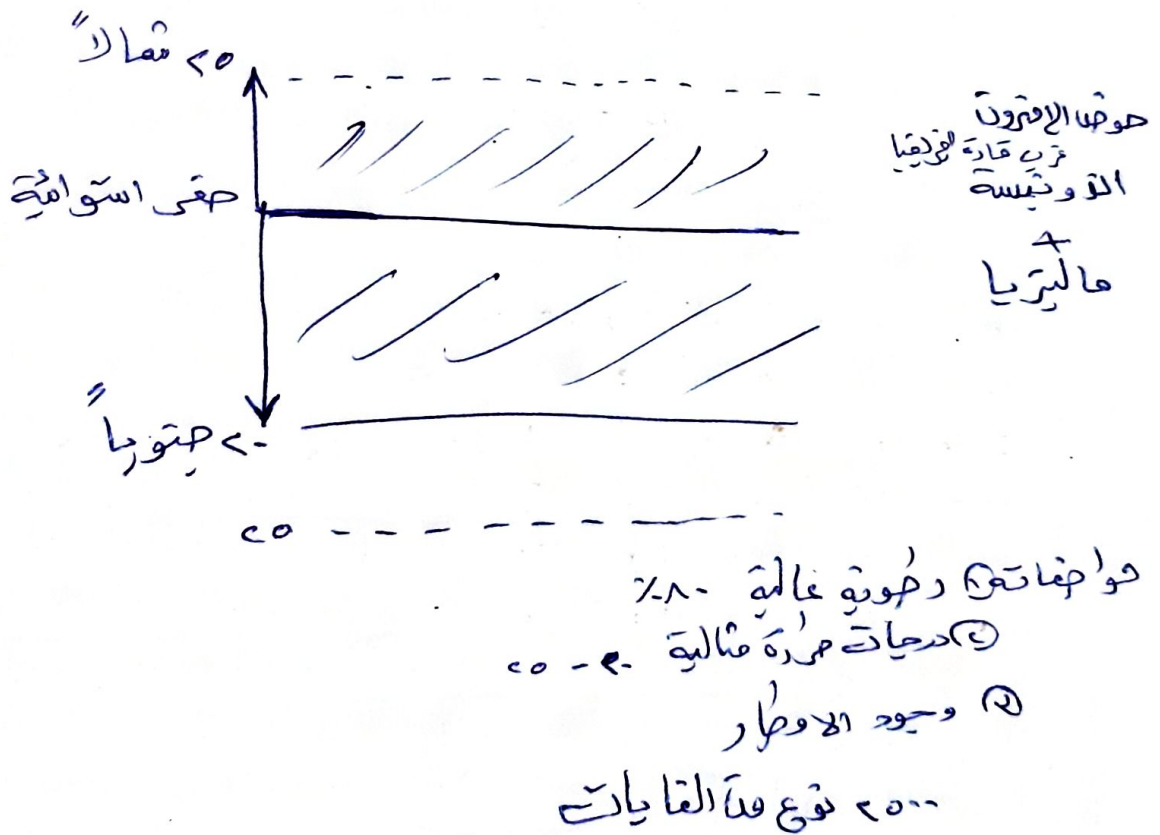 ٢٥ شمالاً
حوض الامزون
غرب قارة افريقيا
اندونيسة
+
ماليزيا
استوائية
٢٠ جنوباً
٢٥
مواصفاته ① رطوبة عالية ٨٠٪
② درجات حرارة مثالية ٢٠ - ٢٥
③ وجود الامطار
٢٥٠٠ نوع من الغابات